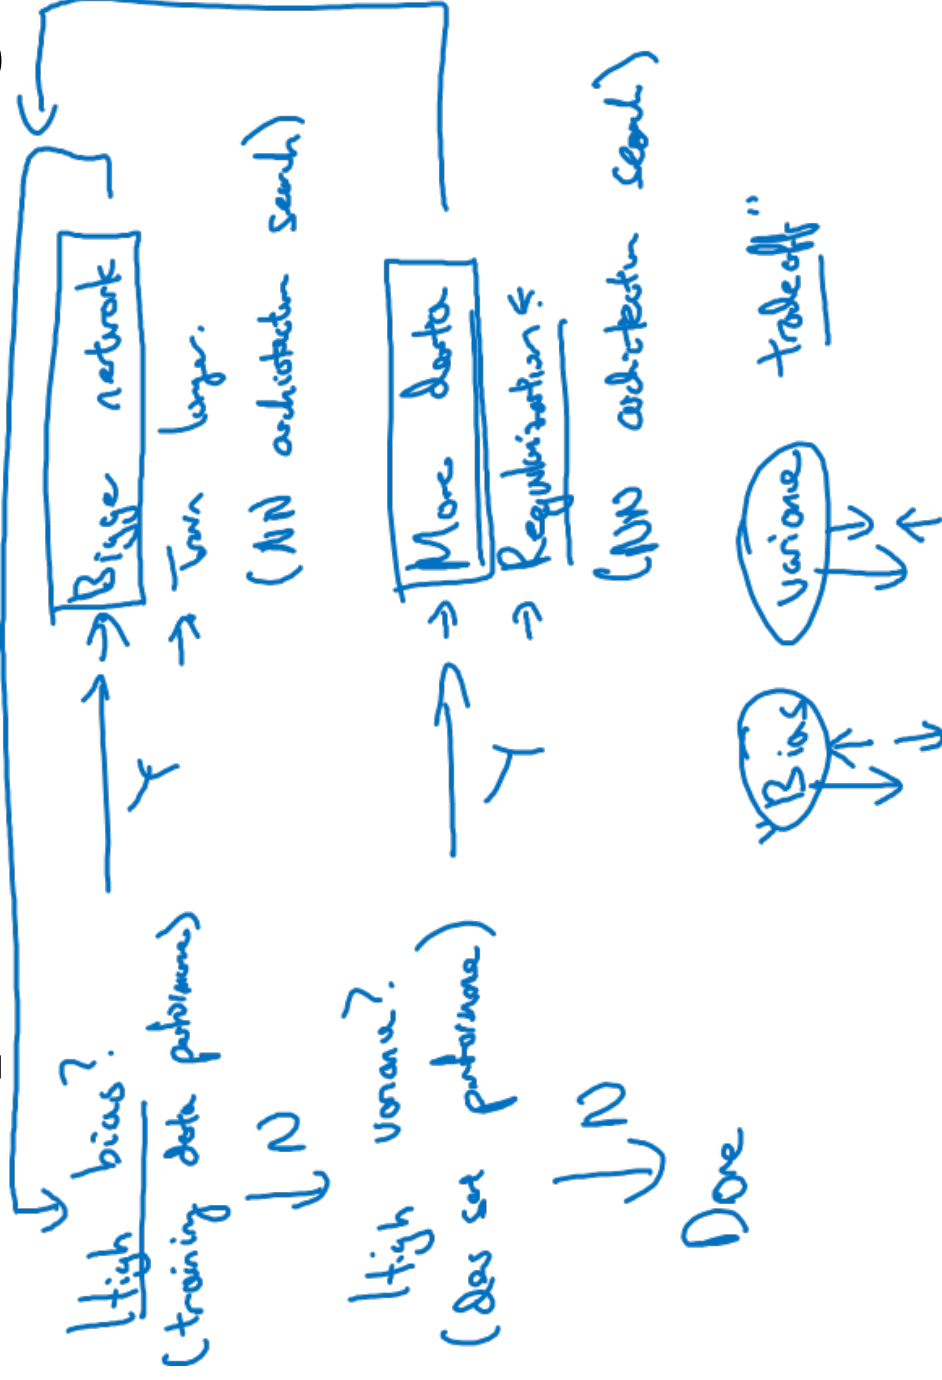 High bias?
(training data performance)
Y
Bigger network
Train longer.
(NN architecture search)
N
High variance?
(dev set performance)
Y
More data
Regularization
(NN architecture search)
N
Done
Bias
Variance
tradeoff"